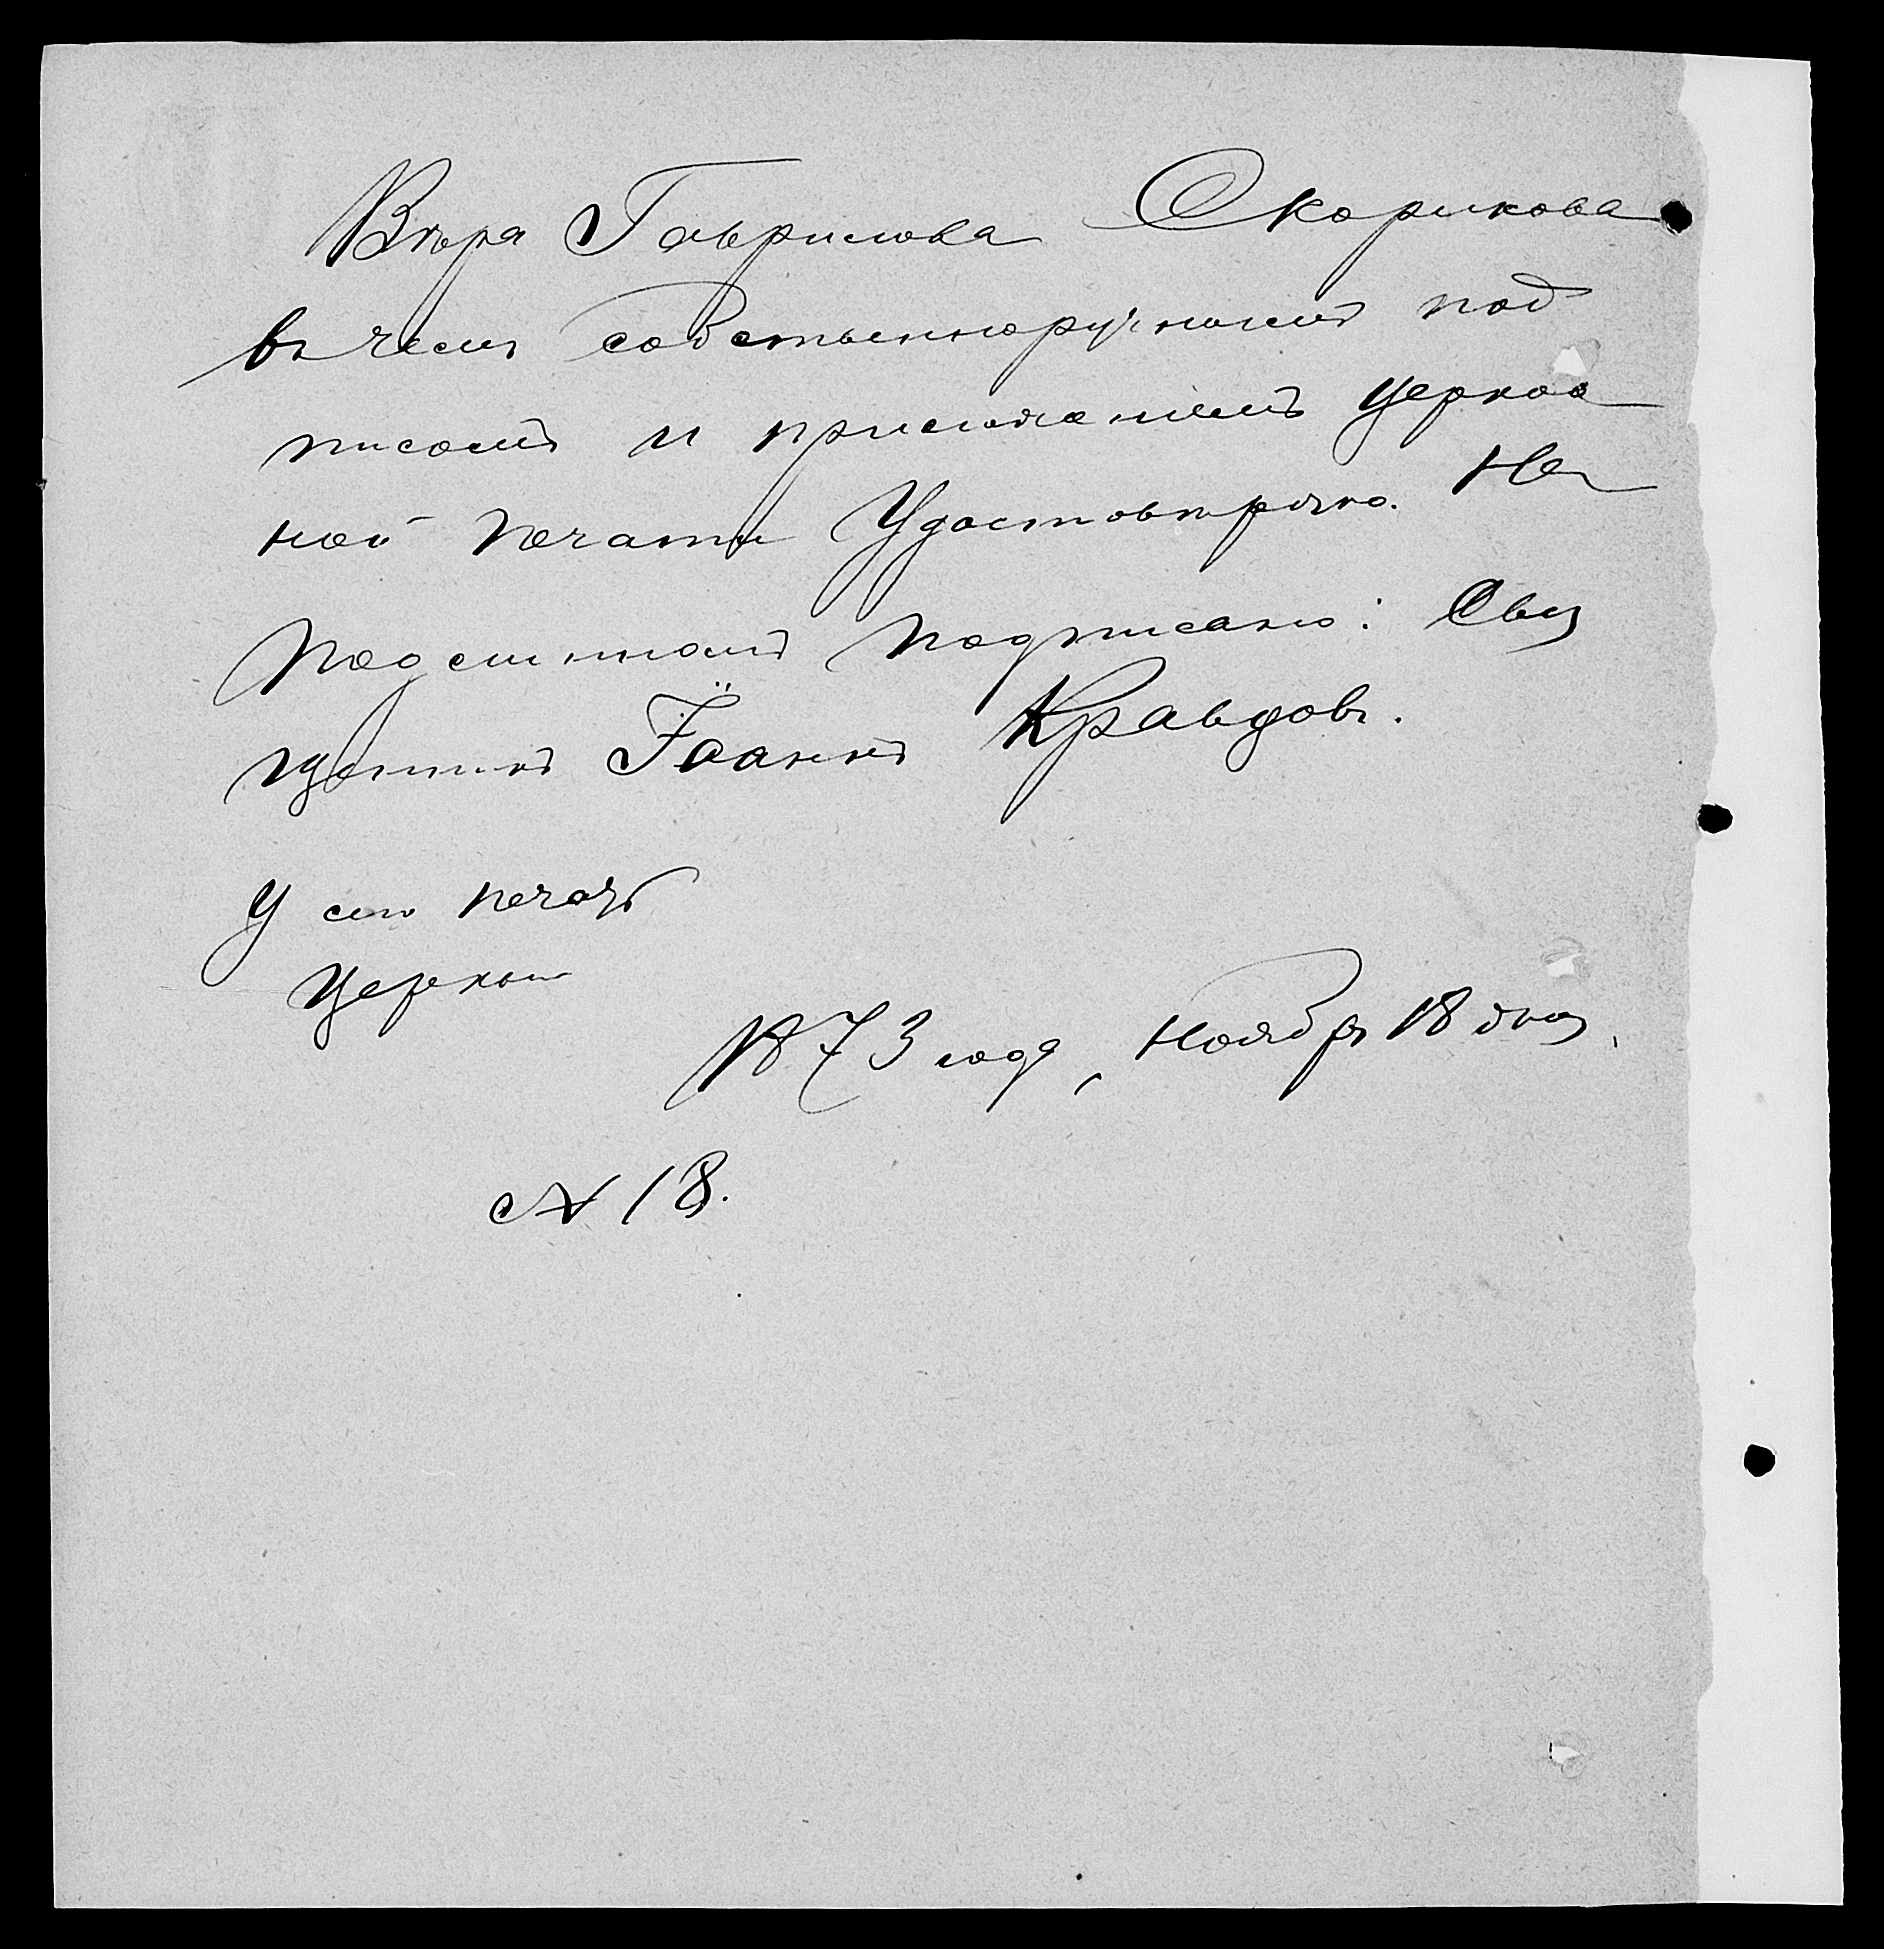 Вѣра Гаврилова Скорикова
въ чемъ собственноручнымъ под
писомъ и приложеніемъ церков
ной печати Удостовѣряю. На
Подлинномъ подписано: Свя
щенникъ Іоаннъ Кравцовъ.
У сего печать
Церкви
1873 года, Ноября 18 дня.
№ 18.